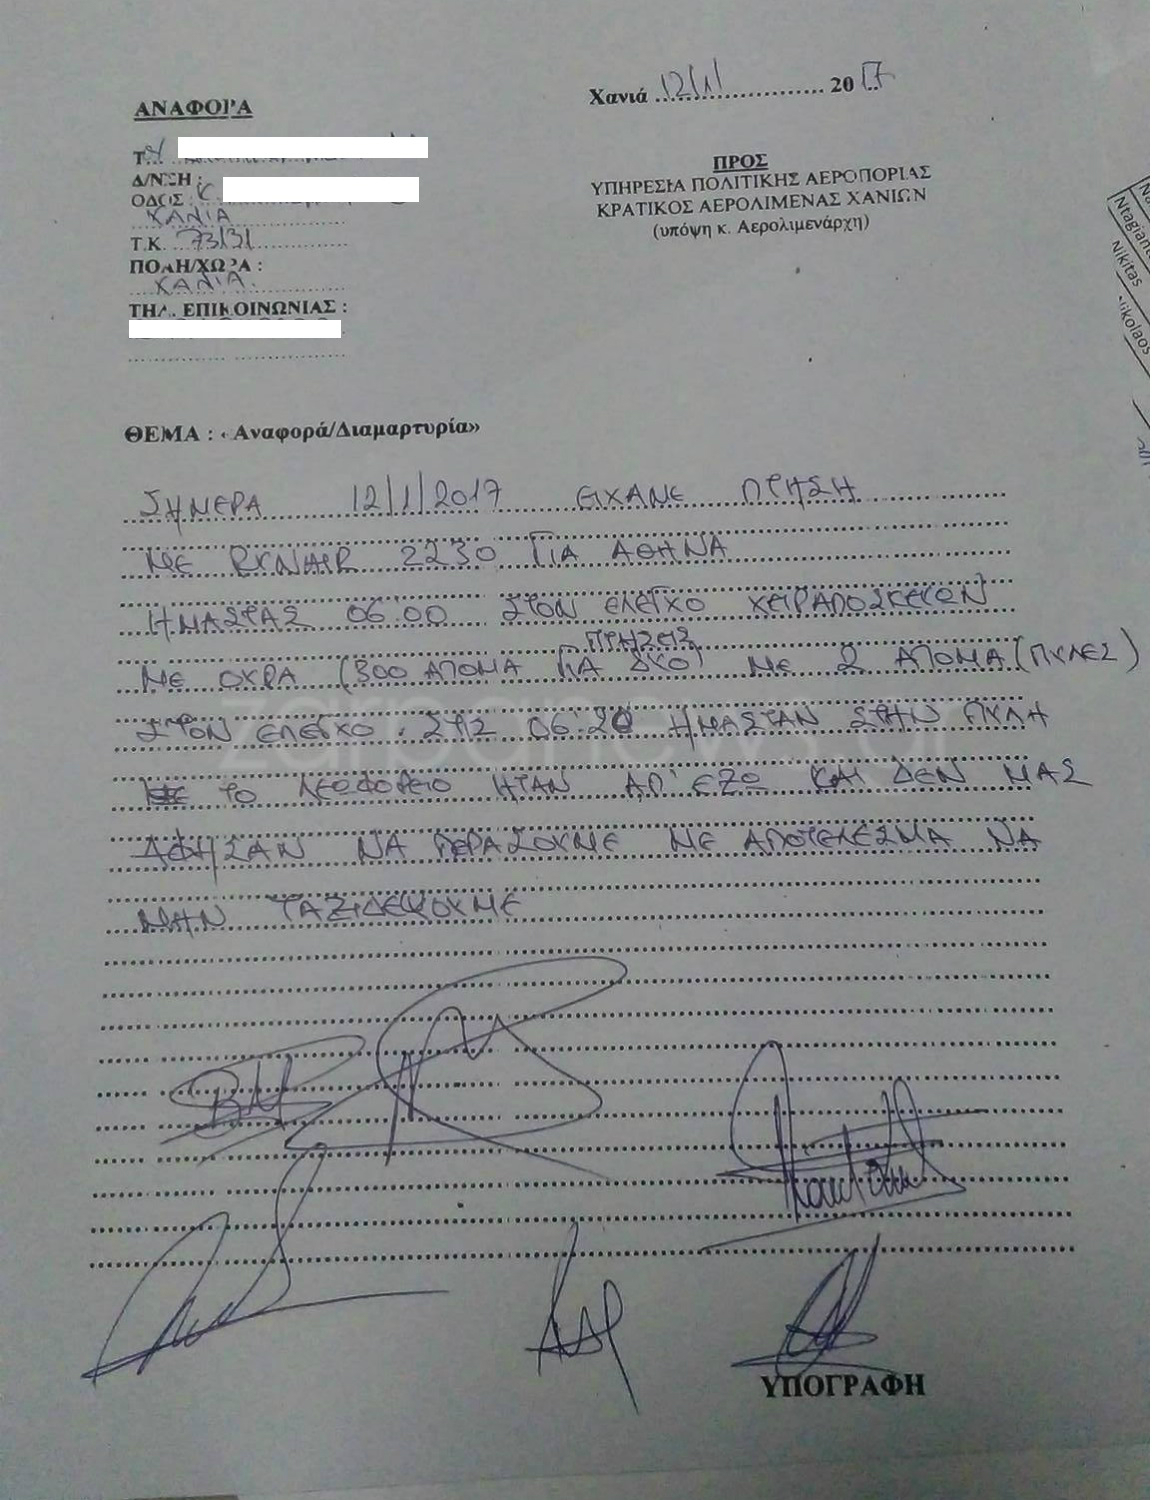 ΑΝΑΦΟΡΑ
Χανιά 12/1/ 2017
Δ/ΝΣΗ :
ΟΔΟΣ : Κ
ΧΑΝΙΑ
Τ.Κ. 73131
ΠΟΛΗ/ΧΩΡΑ :
ΧΑΝΙΑ.
ΤΗΛ. ΕΠΙΚΟΙΝΩΝΙΑΣ :
ΠΡΟΣ
ΥΠΗΡΕΣΙΑ ΠΟΛΙΤΙΚΗΣ ΑΕΡΟΠΟΡΙΑΣ
ΚΡΑΤΙΚΟΣ ΑΕΡΟΛΙΜΕΝΑΣ ΧΑΝΙΩΝ
(υπόψη κ. Αερολιμενάρχη)
Ntagiant
Nikitas
Nikolaos
ΘΕΜΑ : «Αναφορά/Διαμαρτυρία»
ΣΗΜΕΡΑ 12/1/2017 ΕΙΧΑΜΕ ΠΤΗΣΗ
ΜΕ RYNAIR 2230 ΓΙΑ ΑΘΗΝΑ
ΗΜΑΣΤΑΣ 06:00 ΣΤΟΝ ΕΛΕΓΧΟ ΧΕΙΡΑΠΟΣΚΕΥΩΝ
ΠΤΗΣΕΙΣ
ΜΕ ΟΥΡΑ (300 ΑΤΟΜΑ ΓΙΑ ΔΥΟ) ΜΕ 2 ΑΤΟΜΑ (ΠΥΛΕΣ)
ΣΤΟΝ ΕΛΕΓΧΟ. ΣΤΙΣ 06:20 ΗΜΑΣΤΑΝ ΣΤΗΝ ΠΥΛΗ
ΤΟ ΛΕΩΦΟΡΕΙΟ ΗΤΑΝ ΑΠ' ΕΞΩ ΚΑΙ ΔΕΝ ΜΑΣ
ΑΦΗΣΑΝ ΝΑ ΠΕΡΑΣΟΥΜΕ ΜΕ ΑΠΟΤΕΛΕΣΜΑ ΝΑ
ΜΗΝ ΤΑΞΙΔΕΨΟΥΜΕ
ΥΠΟΓΡΑΦΗ